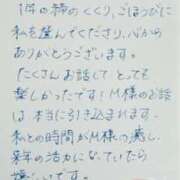 1年の締めくくり、ごほうびに
私を選んでくださり、心から
ありがとうございます。
たくさんお話しして とっても
楽しかったです！M様のお話
は 本当に引き込まれます。
私との時間がM様の癒し、
来年の活力になっていたら
嬉しいです。